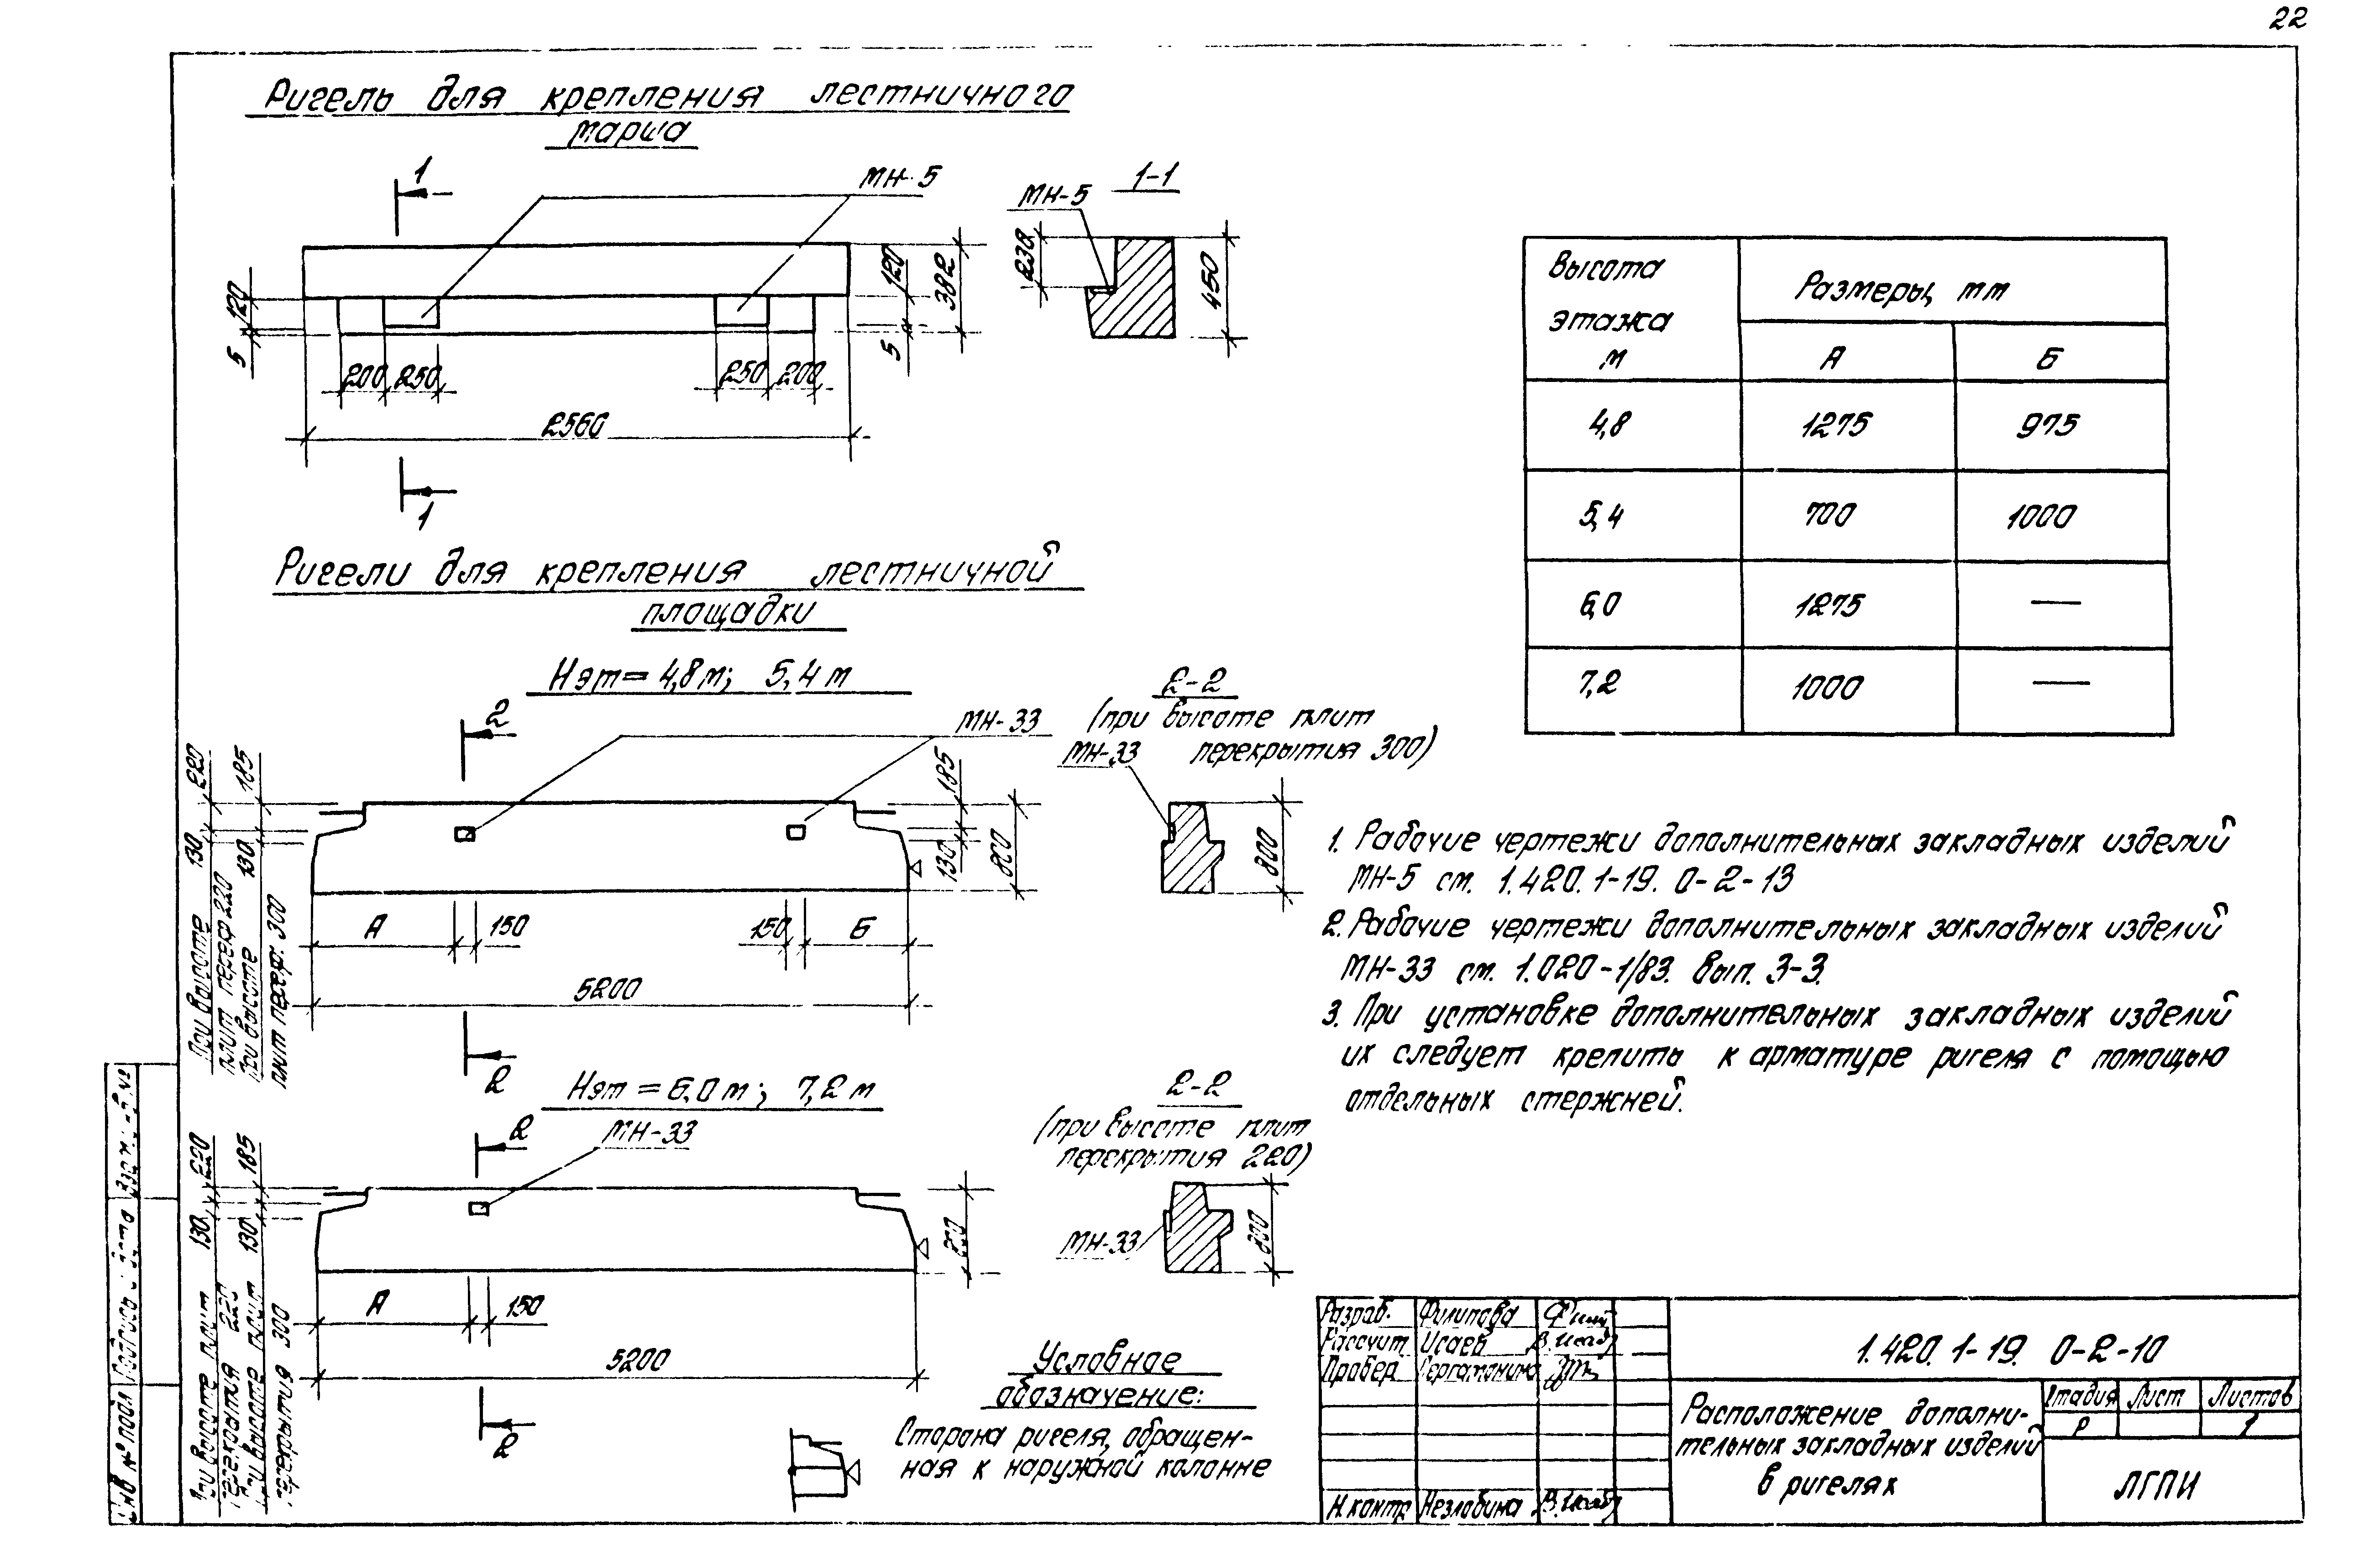 22
Ригель для крепления лестничного
марша
1
МН-5
1-1
МН-5
120
5
120
5
382
238
450
200
250
250
200
2560
1
Ригели для крепления лестничной
площадки
Нэт=4,8м; 5,4м
2
МН-33
2-2
(при высоте плит
перекрытия 300)
МН-33
220
130
При высоте
плит перекр 220
185
130
При высоте
плит перекр. 300
185
130
800
800
А
150
150
Б
5200
2
Нэт=6,0м; 7,2м
2
МН-33
2-2
(при высоте плит
перекрытия 220)
МН-33
220
130
При высоте плит
перекрытия 220
185
130
При высоте плит
перекрытия 300
800
800
А
150
5200
2
Условное
обозначение:
Сторона ригеля, обращен-
ная к наружной колонне
Высота
этажа
м
Размеры, мм
А
Б
4,8
1275
975
5,4
700
1000
6,0
1275
—
7,2
1000
—
1. Рабочие чертежи дополнительных закладных изделий
МН-5 см. 1.420.1-19. 0-2-13
2. Рабочие чертежи дополнительных закладных изделий
МН-33 см. 1.020-1/83. вып. 3-3.
3. При установке дополнительных закладных изделий
их следует крепить к арматуре ригеля с помощью
отдельных стержней.
Разраб. Филипова
Рассчит Исаев
Провер
Н.контр Незлобина
1.420.1-19. 0-2-10
Расположение дополни-
тельных закладных изделий
в ригелях
Стадия Лист Листов
Р 1
ЛГПИ
Инв № подл
Подпись и дата